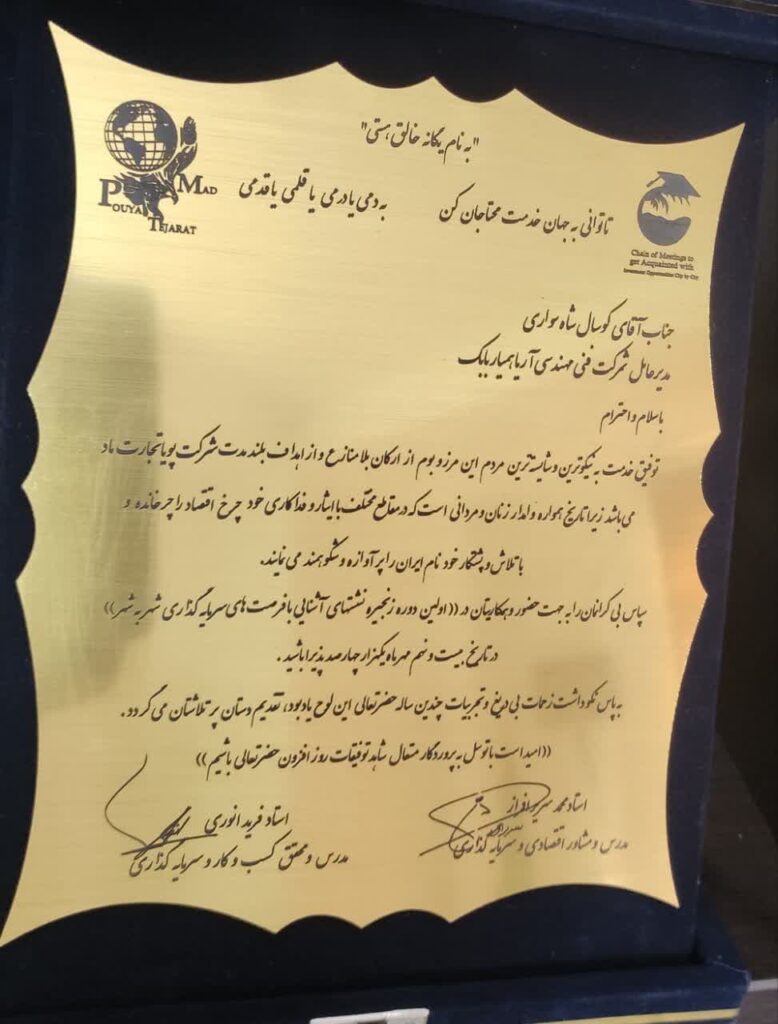 "به نام یگانه خالق هستی"
تا توانی به جهان خدمت محتاجان کن به دمی یا درمی یا قلمی یا قدمی
POUYA TEJARAT MAD
Chain of Meetings to
get Acquainted with
Investment Opportunities City by City
جناب آقای کوسال شاه سواری
مدیرعامل شرکت فنی مهندسی آریا همیار بابک
با سلام و احترام
توفیق خدمت به نیکوترین و شایسته ترین مردم این مرز و بوم از ارکان بلامنازع و از اهداف بلند مدت شرکت پویا تجارت ماد
می باشد زیرا تاریخ همواره وامدار زنان و مردانی است که در مقاطع مختلف با ایثار و فداکاری خود چرخ اقتصاد را چرخانده و
با تلاش و پشتکار خود نام ایران را پر آوازه و شکوهمند می نمایند.
سپاس بی کرانمان را به جهت حضور و همکاریتان در ((اولین دوره زنجیره نشستهای آشنایی با فرصت های سرمایه گذاری شهر به شهر))
در تاریخ بیست و نهم مهرماه یکهزار چهارصد پذیرا باشید.
به پاس نکوداشت زحمات بی دریغ و تجربیات چندین ساله حضرتعالی این لوح یادبود، تقدیم دستان پر تلاشتان می گردد.
((امید است با توسل به پروردگار متعال شاهد توفیقات روز افزون حضرتعالی باشیم))
استاد محمد سرپرافراز
مدرس و مشاور اقتصادی و سرمایه گذاری
استاد فرید انوری
مدرس و محقق کسب و کار و سرمایه گذاری